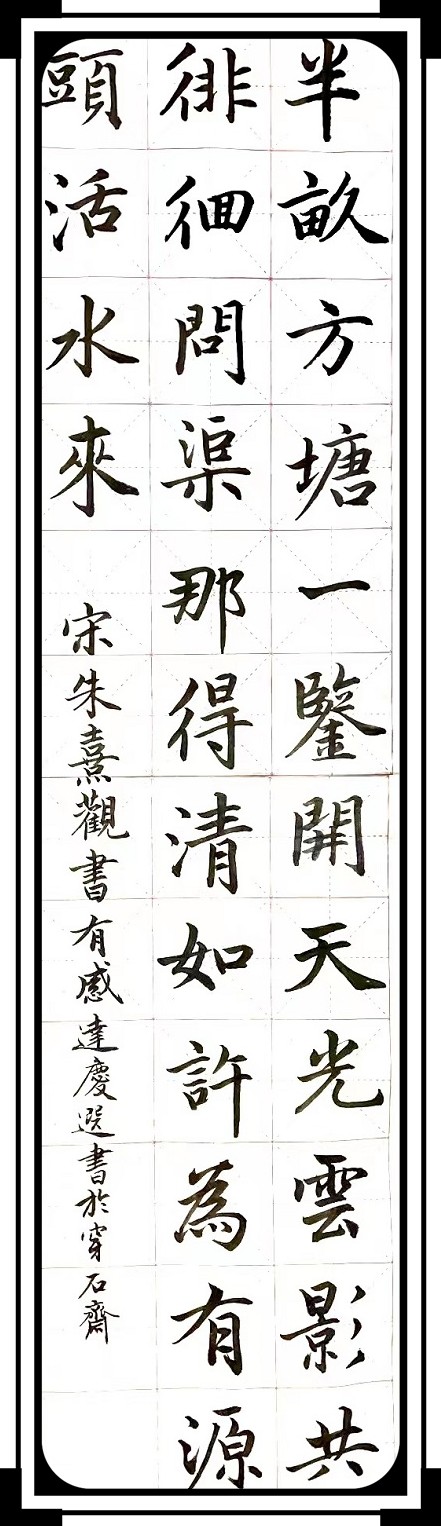 半畝方塘一鑒開天光雲影共
徘徊問渠那得清如許為有源
頭活水來
宋朱熹觀書有感達慶選書於穿石齋